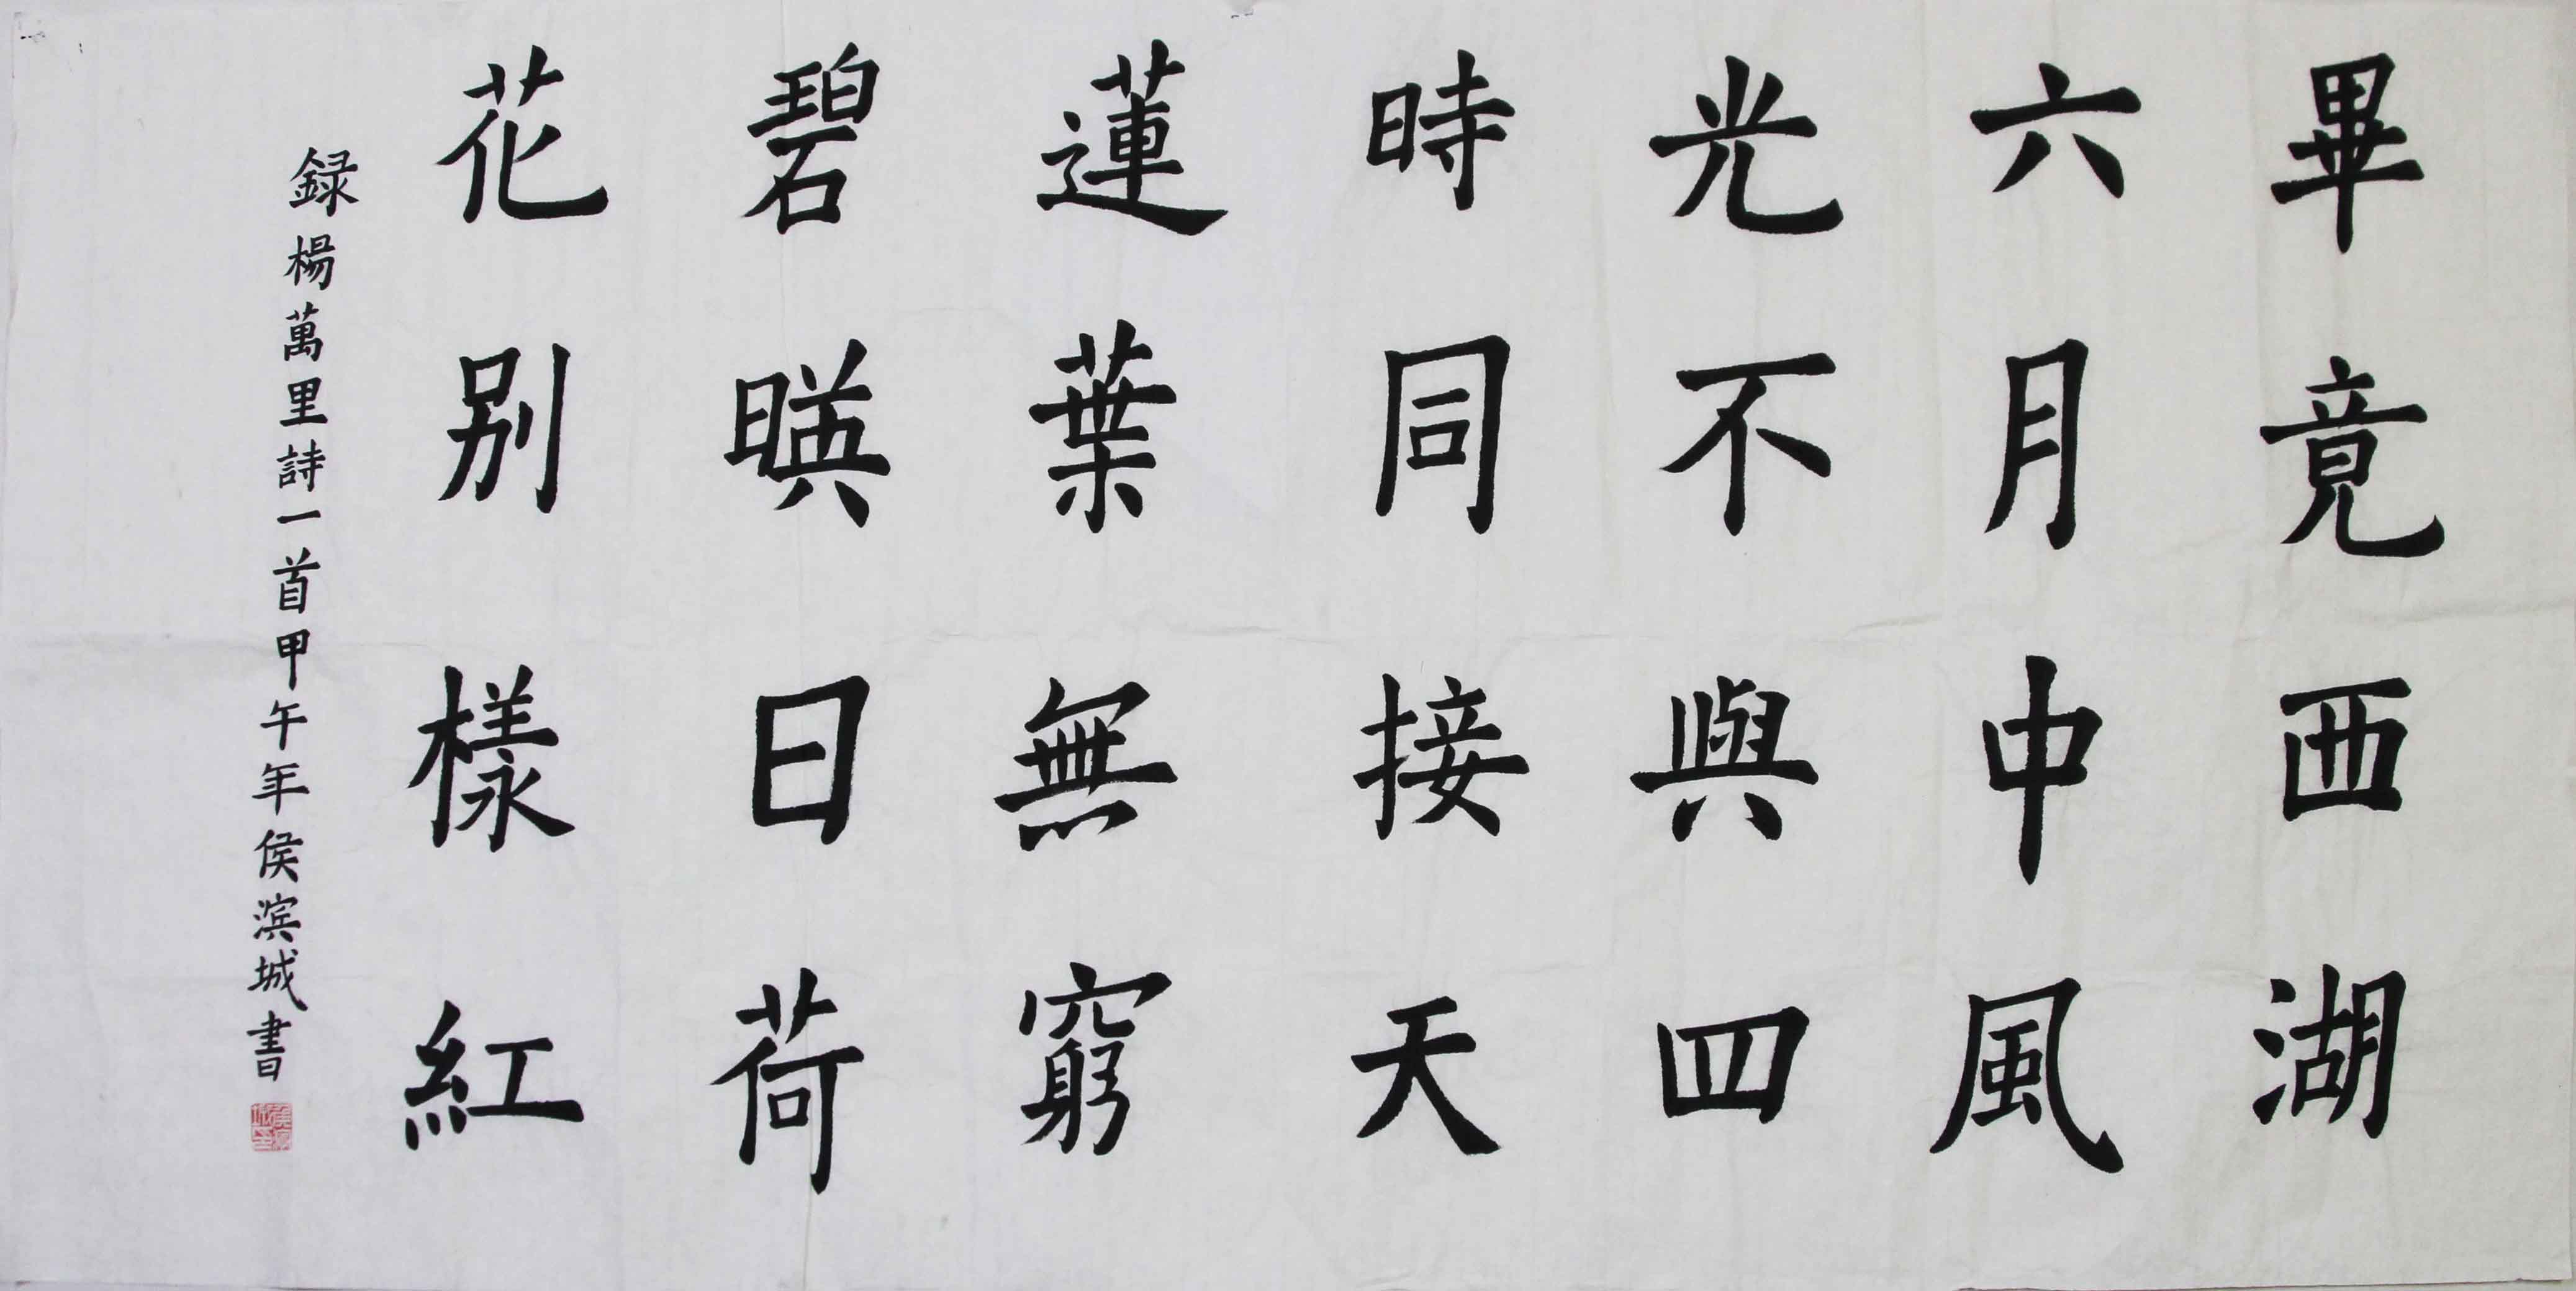 畢竟西湖
六月中風
光不與四
時同接天
蓮葉無窮
碧暎日荷
花別樣紅
録楊萬里詩一首甲午年侯滨城書